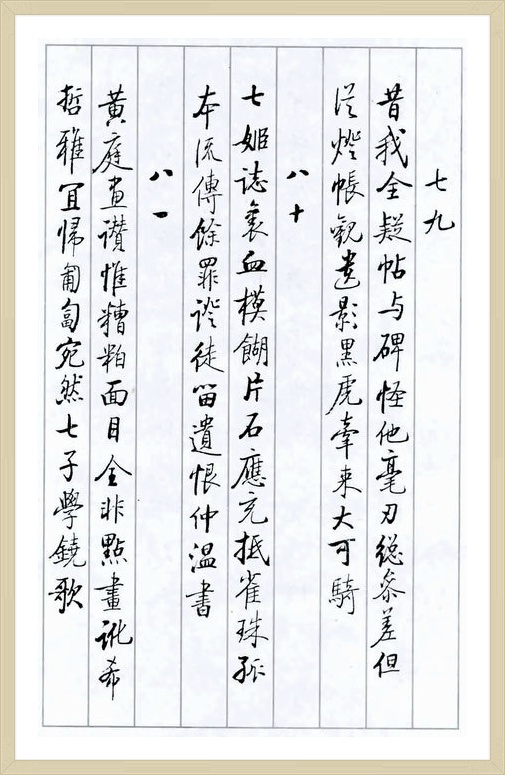 七九
昔我全疑帖与碑怪他毫刃總参差但
從燈帳觀遺影黑虎牽来大可騎
八十
七姬誌裏血模餬片石應充抵雀珠孤
本流傳餘罪證徒留遺恨仲温書
八一
黃庭畫讚惟糟粕面目全非點畫訛希
哲雅宜歸匍匐宛然七子學鐃歌